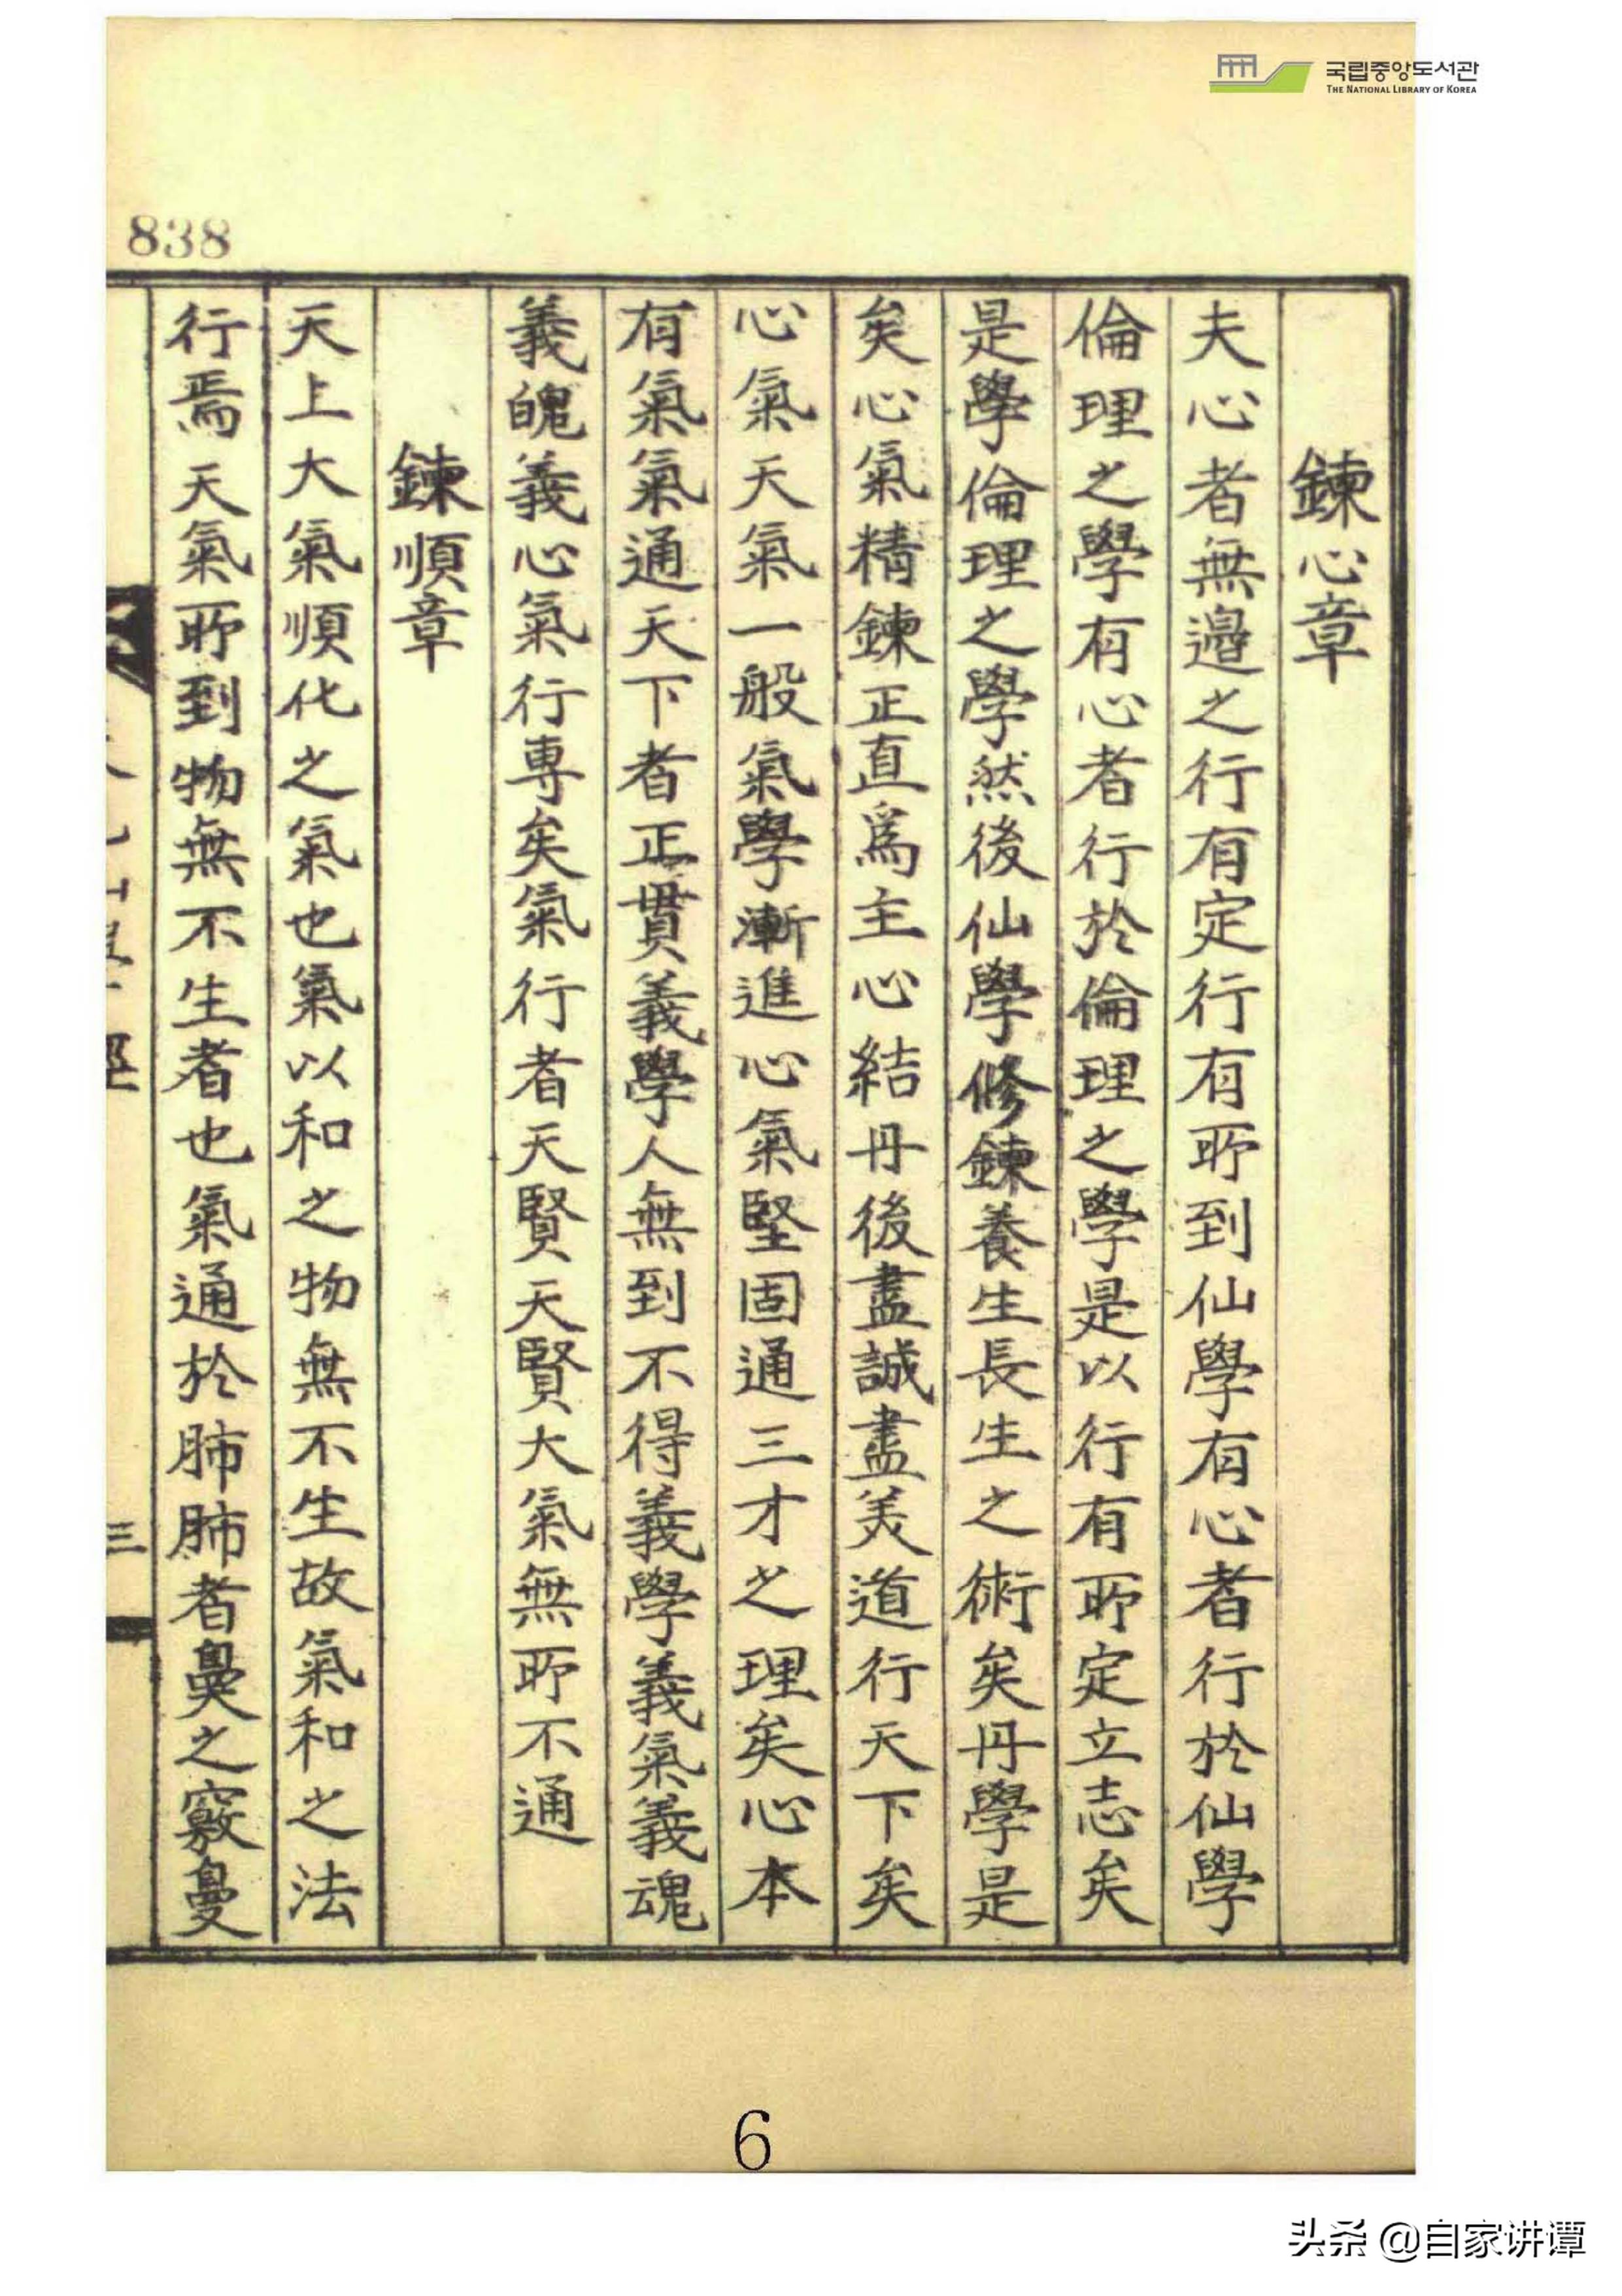 국립중앙도서관
THE NATIONAL LIBRARY OF KOREA
838
鍊心章
夫心者無邉之行有定行有所到仙學有心者行於仙學
倫理之學有心者行於倫理之學是以行有所定立志矣
是學倫理之學然後仙學修鍊養生長生之術矣丹學是
矣心氣精鍊正直爲主心結丹後盡誠盡美道行天下矣
心氣天氣一般氣學漸進心氣堅固通三才之理矣心本
有氣氣通天下者正貫義學人無到不得義學義氣義魂
義魄義心氣行專矣氣行者天賢天賢大氣無所不通
鍊順章
天上大氣順化之氣也氣以和之物無不生故氣和之法
行焉天氣所到物無不生者也氣通於肺肺者鼻之竅鼻
三
6
头条 @自家讲谭